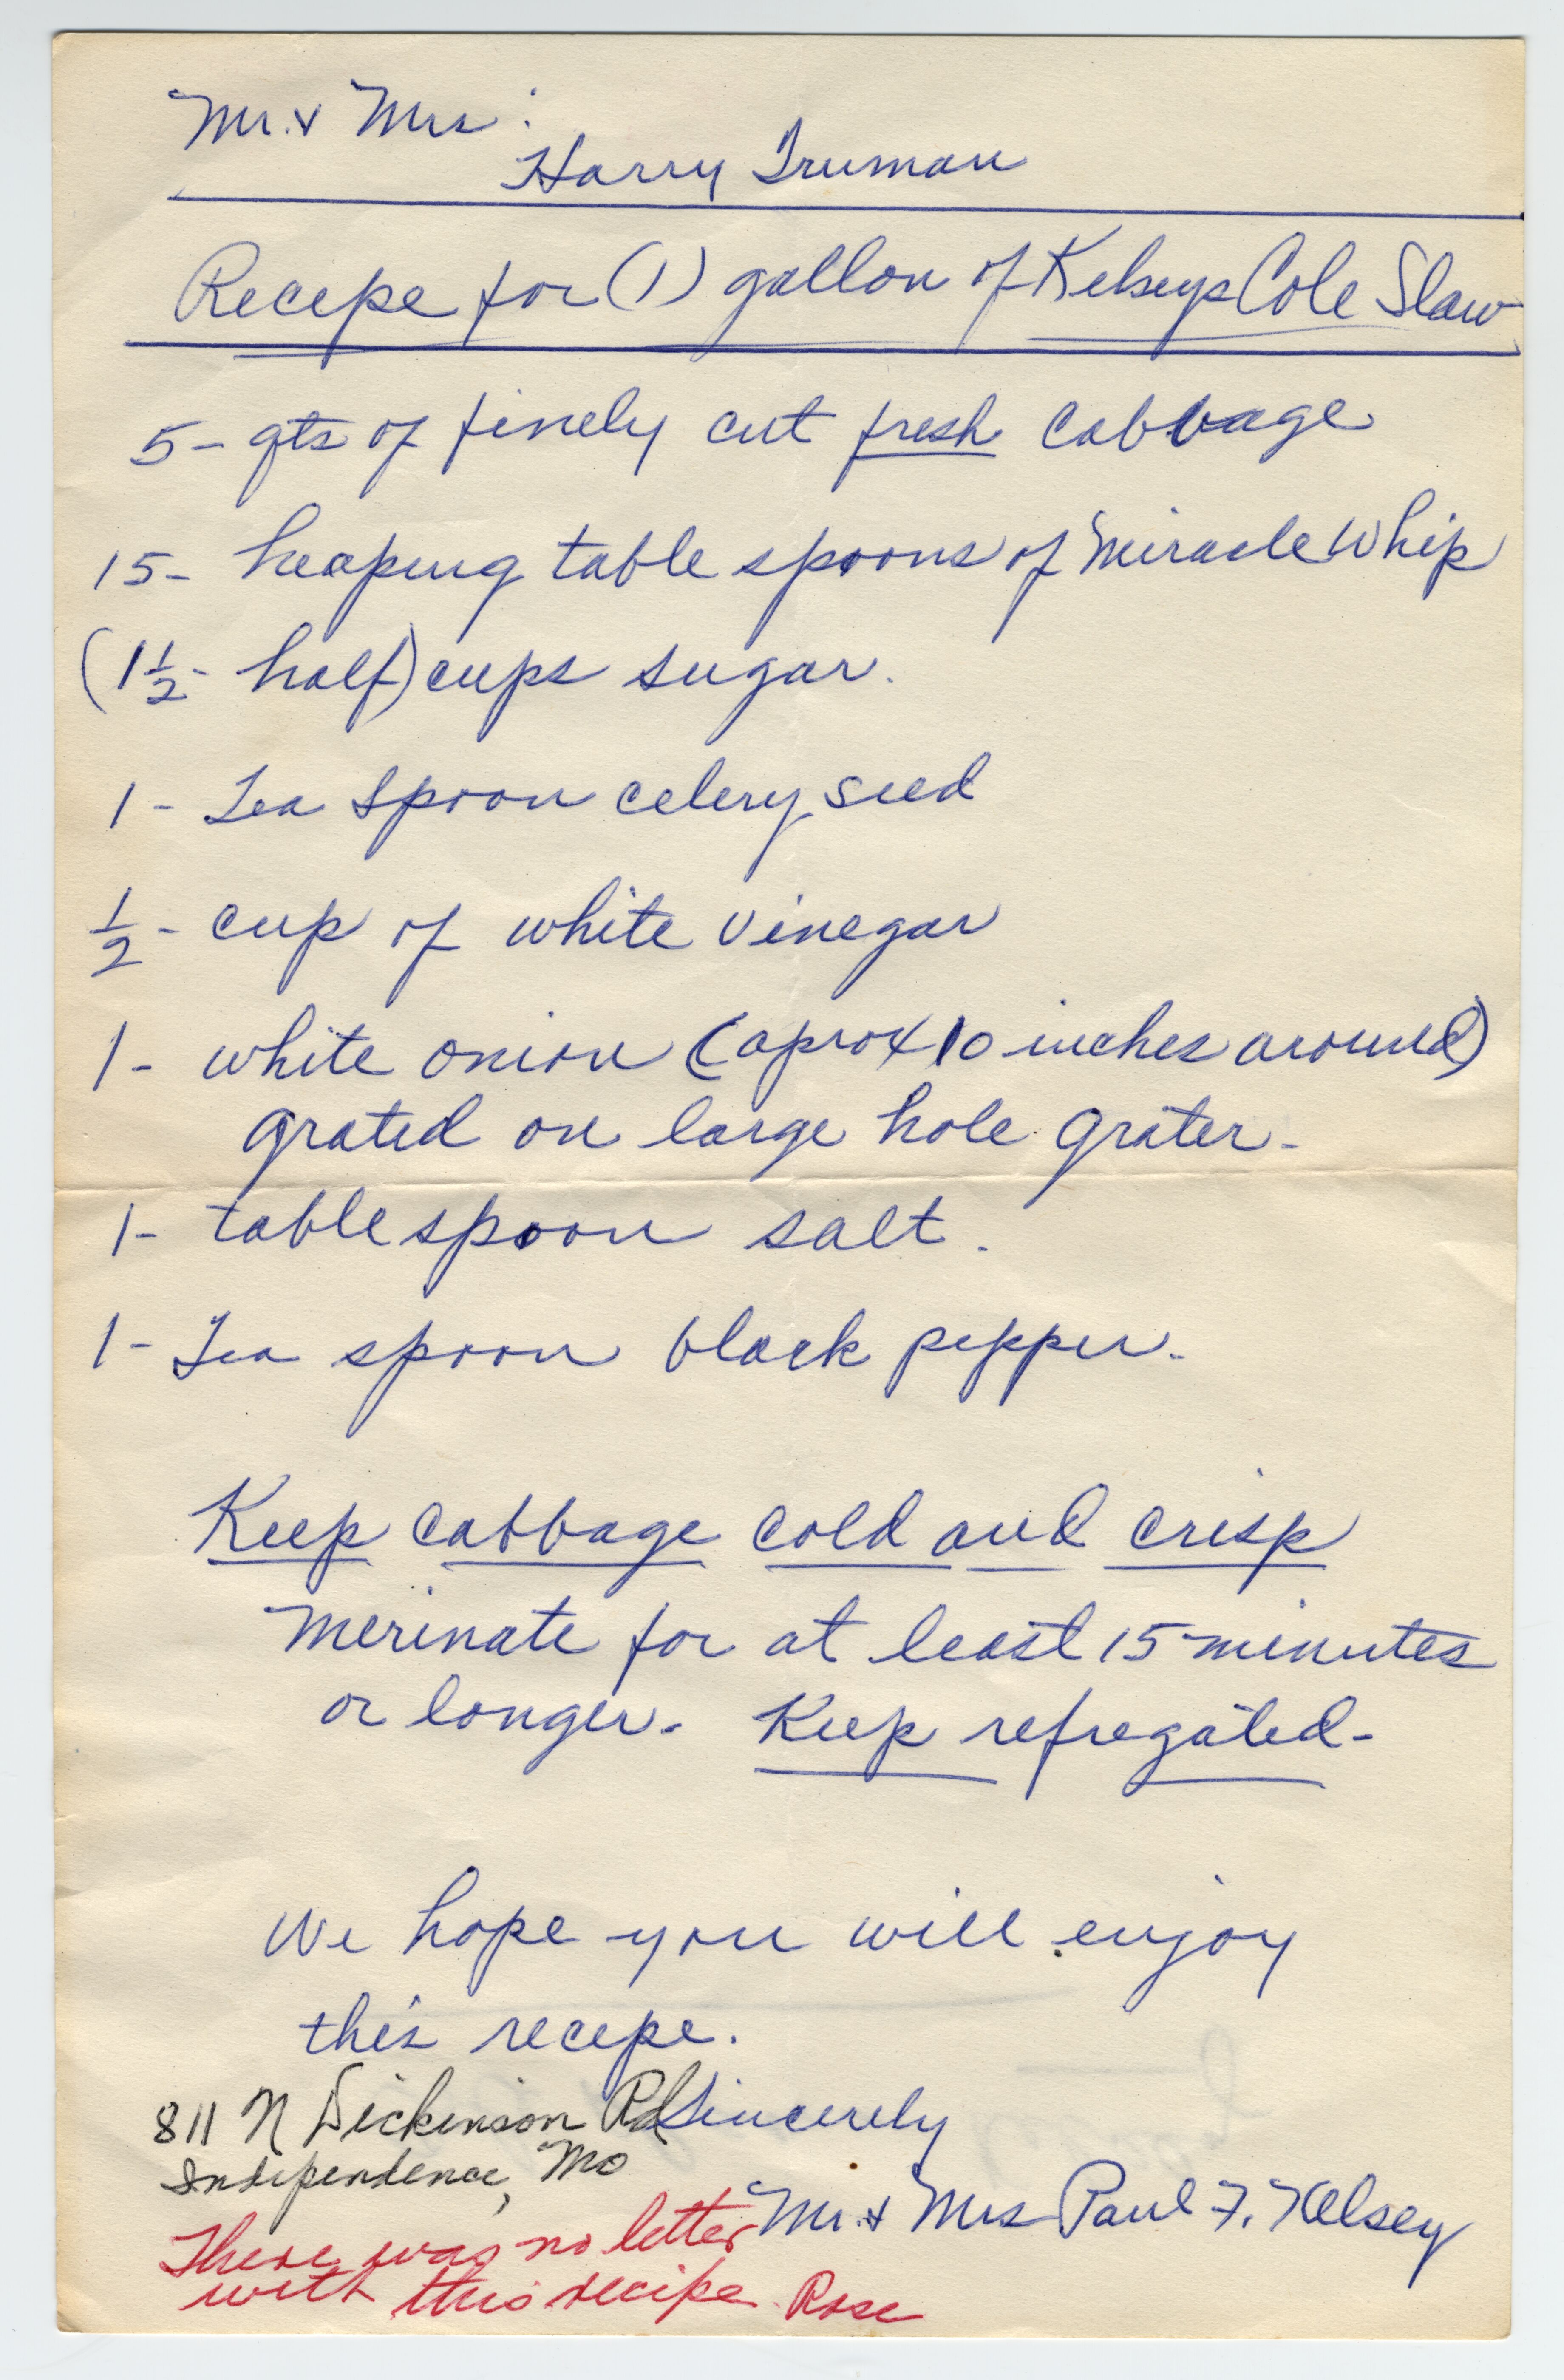 Mr. & Mrs.
Harry Truman
Recepe for (1) gallon of Kelseys Cole Slaw
5- qts of finely cut fresh cabbage
15- heaping table spoons of Miracle Whip
(1½- half) cups sugar.
1- Tea spoon celery seed
½- cup of white vinegar
1- white onion (aprox 10 inches around)
grated on large hole grater.
1- table spoon salt.
1- Tea spoon black pepper.
Keep cabbage cold and crisp
Merinate for at least 15 minutes
or longer. Keep refregated-
We hope you will enjoy
this recepe.
Sincerely
Mr. & Mrs Paul F. Kelsey
811 N Dickinson Rd
Independence, Mo
There was no letter
with this recipe. Rose